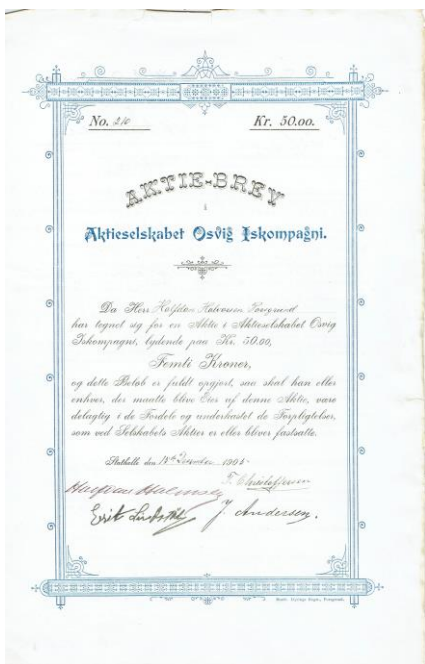 No. 210 Kr. 50.00.
AKTIE-BREV
i
Aktieselskabet Osvig Iskompagni.
Da Herr Halfdan Halvorsen
har tegnet sig for en Aktie i Aktieselskabet Osvig
Iskompagni, lydende paa Kr. 50.00,
Femti Kroner,
og dette Beløb er fuldt opgjort, saa skal han eller
enhver, der maatte blive Eier af denne Aktie, være
delagtig i de Fordele og underkastet de Forpligtelser,
som ved Selskabets Aktier er eller bliver fastsatte.
Stathelle den 14 December 1905
J. Andersen.